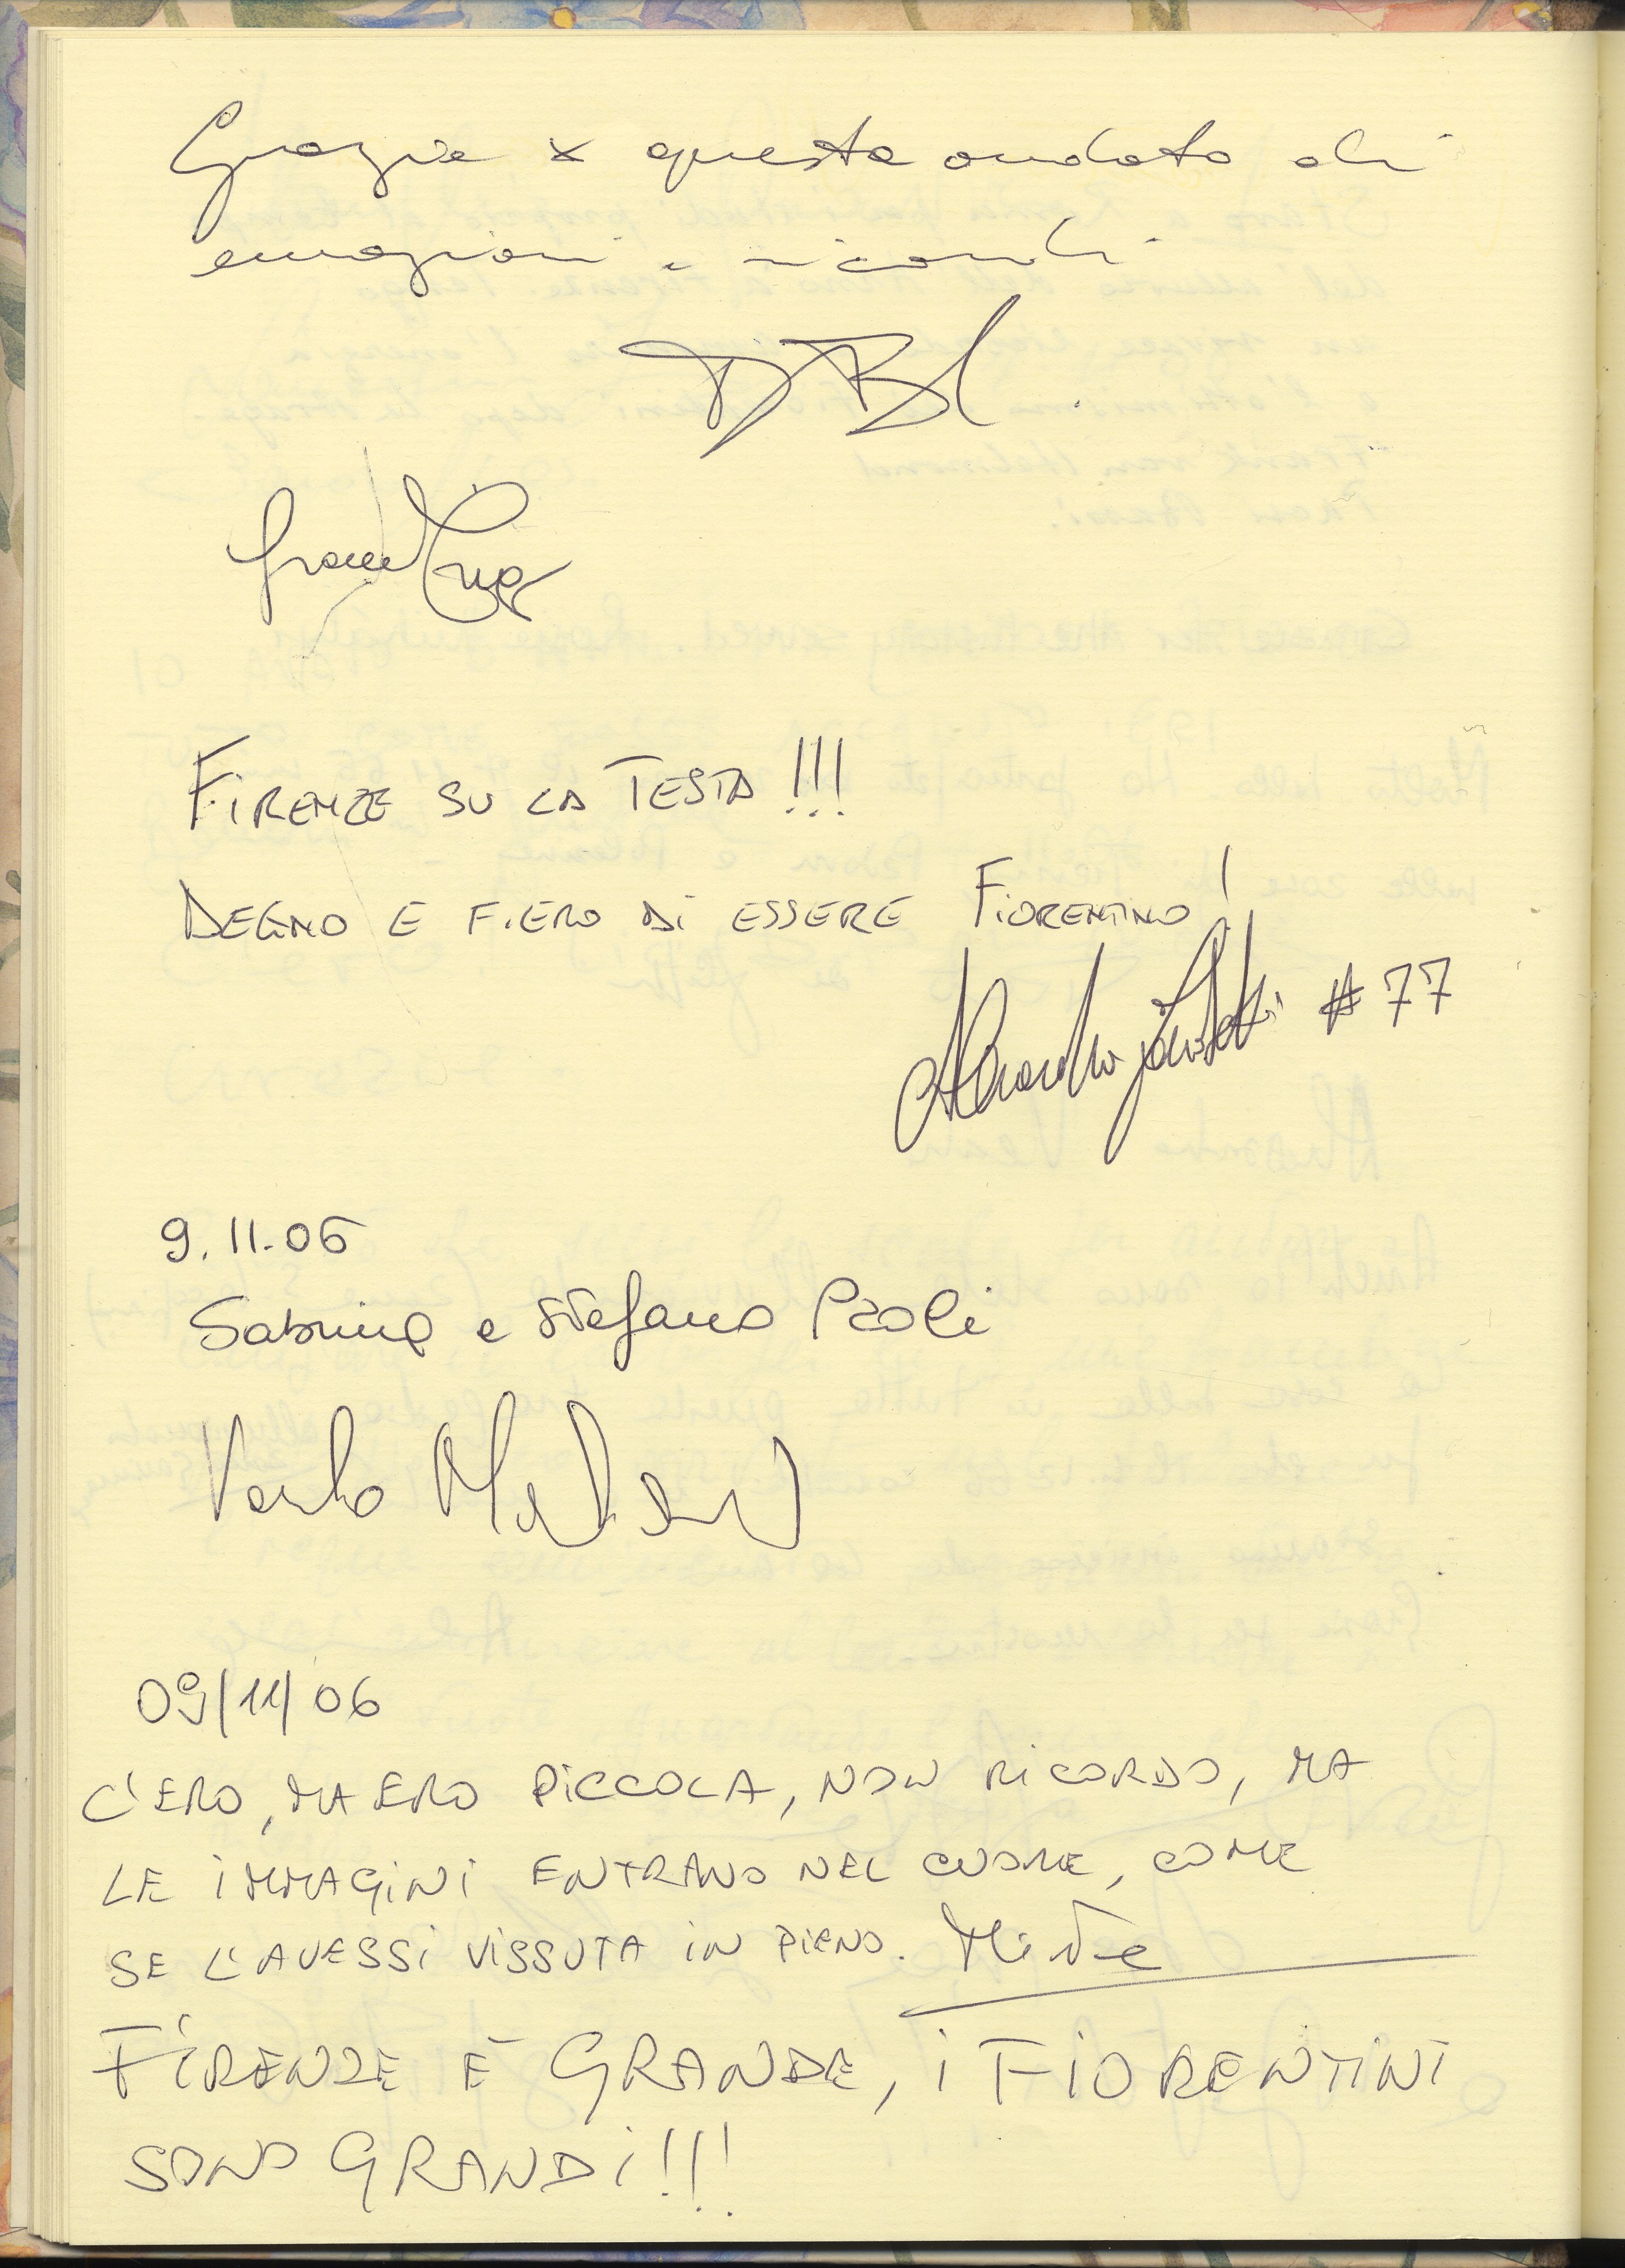 Grazie x questa ondata di
emozioni e ricordi
FIRENZE SU LA TESTA!!!
DEGNO E FIERO DI ESSERE FIORENTINO!
Alessandro #77
9.11.06
Sabrina e Stefano Paoli
09/11/06
C'ERO, MA ERO PICCOLA, NON RICORDO, MA
LE IMMAGINI ENTRANO NEL CUORE, COME
SE L'AVESSI VISSUTA IN PIENO.
FIRENZE È GRANDE, I FIORENTINI
SONO GRANDI!!!